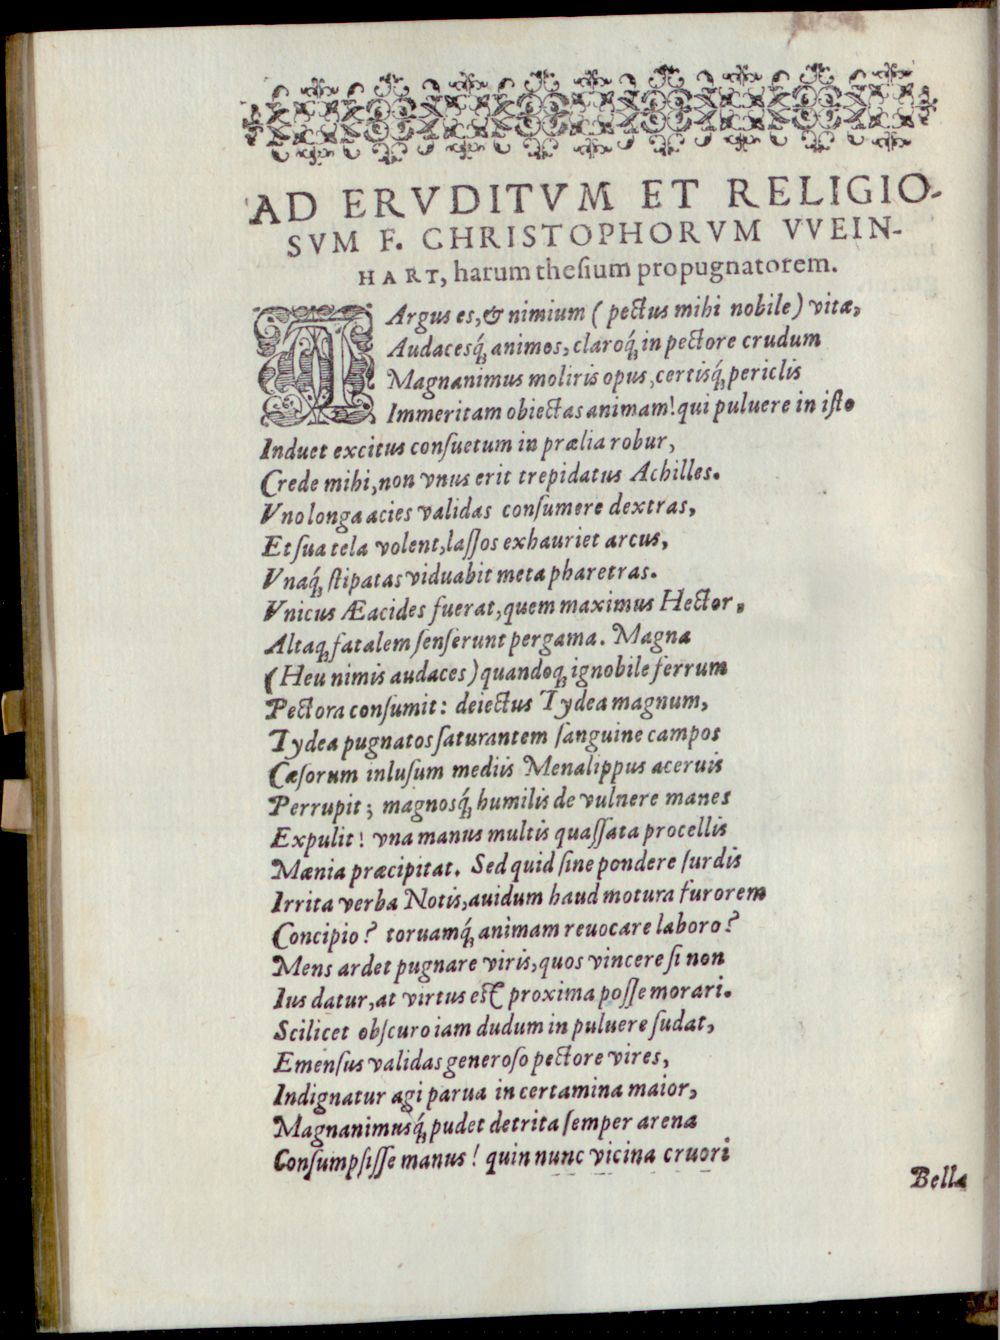 AD ERVDITVM ET RELIGIO-
SVM F. CHRISTOPHORVM VVEIN-
HART, harum thesium propugnatorem.
LArgus es, & nimium (pectus mihi nobile) vitæ,
Audacesq́; animos, claroq́; in pectore crudum
Magnanimus moliris opus, certisq́; periclis
Immeritam obiectas animam! qui puluere in isto
Induet excitus consuetum in prælia robur,
Crede mihi, non vnus erit trepidatus Achilles.
Vno longa acies validas consumere dextras,
Et sua tela volent, lassos exhauriet arcus,
Vnaq́; stipatas viduabit meta pharetras.
Vnicus Æacides fuerat, quem maximus Hector,
Altaq; fatalem senserunt pergama. Magna
(Heu nimis audaces) quandoq; ignobile ferrum
Pectora consumit: deiectus Tydea magnum,
Tydea pugnatos saturantem sanguine campos
Cæsorum inlusum mediis Menalippus aceruis
Perrupit; magnosq́; humilis de vulnere manes
Expulit! vna manus multis quassata procellis
Mænia præcipitat. Sed quid sine pondere surdis
Irrita verba Notis, auidum haud motura furorem
Concipio? toruamq́; animam reuocare laboro?
Mens ardet pugnare viris, quos vincere si non
Ius datur, at virtus est proxima posse morari.
Scilicet obscuro iam dudum in puluere sudat,
Emensus validas generoso pectore vires,
Indignatur agi parua in certamina maior,
Magnanimusq́; pudet detrita semper arena
Consumpsisse manus! quin nunc vicina cruori
Bella